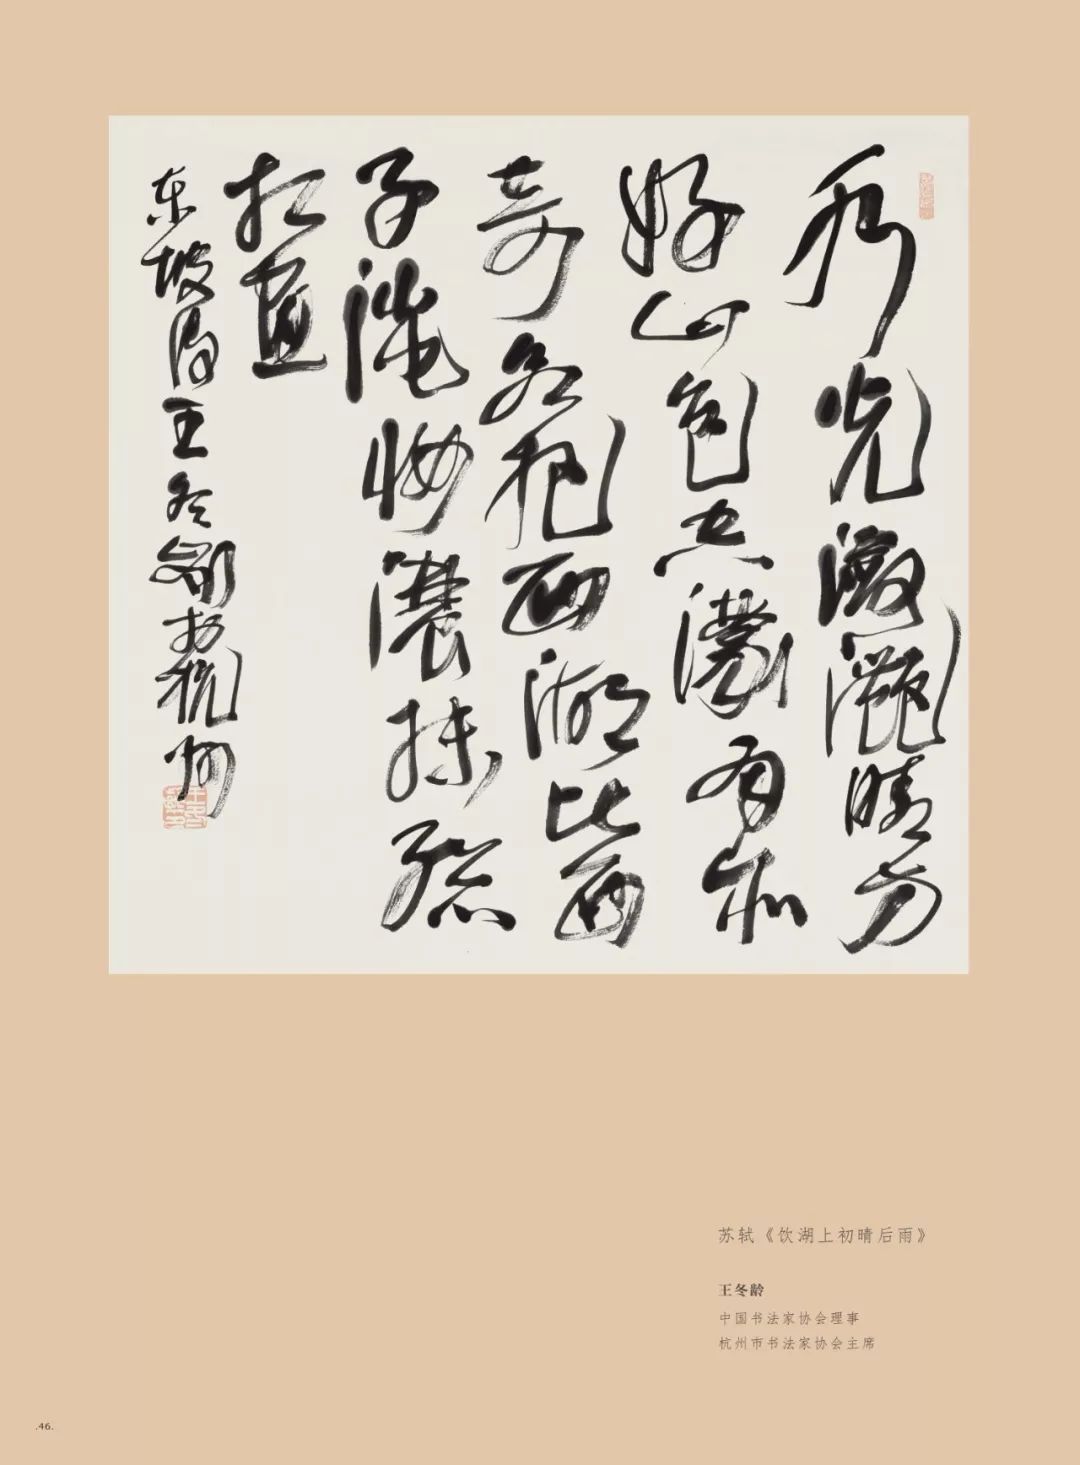 水光潋灩晴方
好山色空濛雨亦
奇欲把西湖比西
子淡妝濃抹總
相宜
东坡诗王冬龄於杭州
苏轼《饮湖上初晴后雨》
王冬龄
中国书法家协会理事
杭州市书法家协会主席
.46.